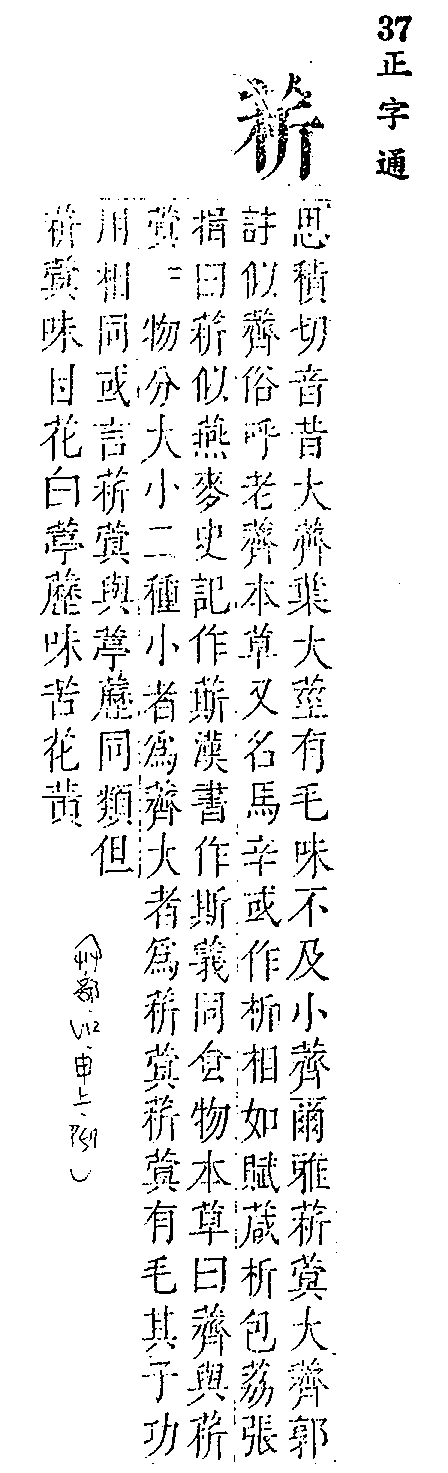 37正字通
菥
思積切音昔大薺葉大莖有毛味不及小薺爾雅菥蓂大薺郭
註似薺俗呼老薺本草又名馬辛或作析相如賦葴析包荔張
揖曰菥似燕麥史記作蕲漢書作斯義同食物本草曰薺與菥
蓂一物分大小二種小者為薺大者為菥蓂菥蓂有毛其子功
用相同或言菥蓂與葶藶同類但
菥蓂味甘花白葶藶味苦花黃
(艸部、八、申上、